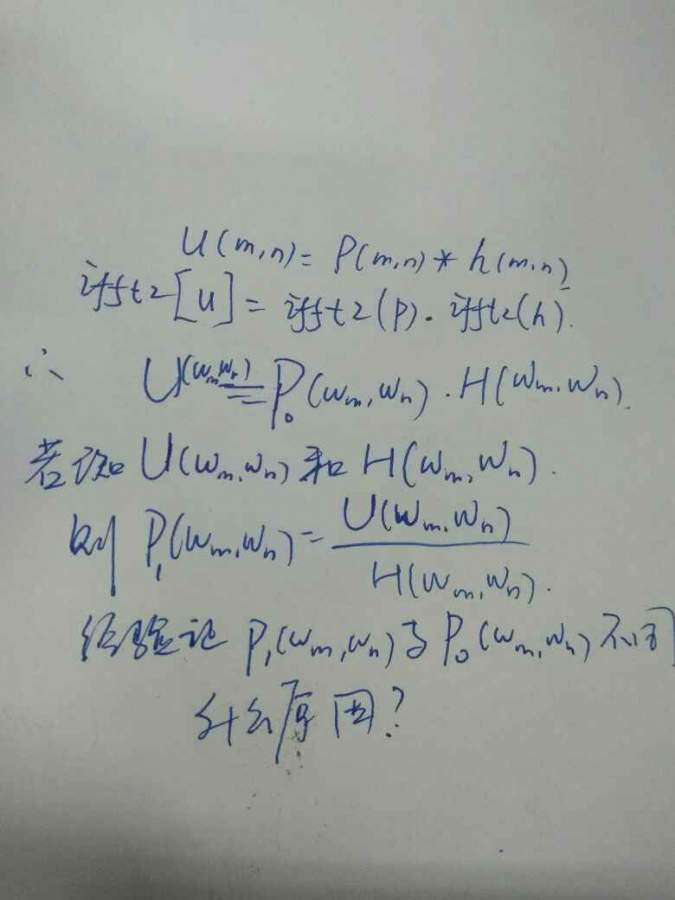 U(m,n) = P(m,n) * h(m,n)
ifft2[U] = ifft2(P)·ifft2(h).
∴ U(Wm,Wn) = P₀(Wm,Wn)·H(Wm,Wn).
若知 U(Wm,Wn) 和 H(Wm,Wn).
则 P₁(Wm,Wn) = U(Wm,Wn) / H(Wm,Wn).
经验证 P₁(Wm,Wn) 与 P₀(Wm,Wn) 不同
什么原因?